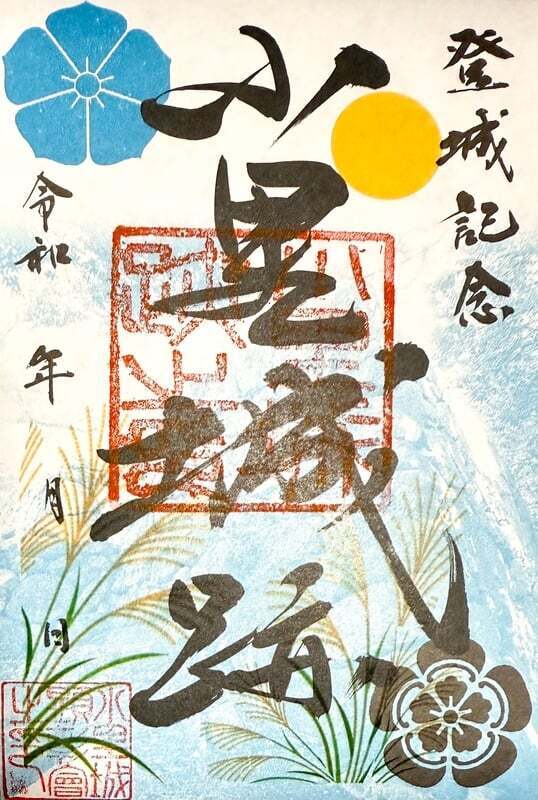 登城記念
小里城跡
令和 年 月 日